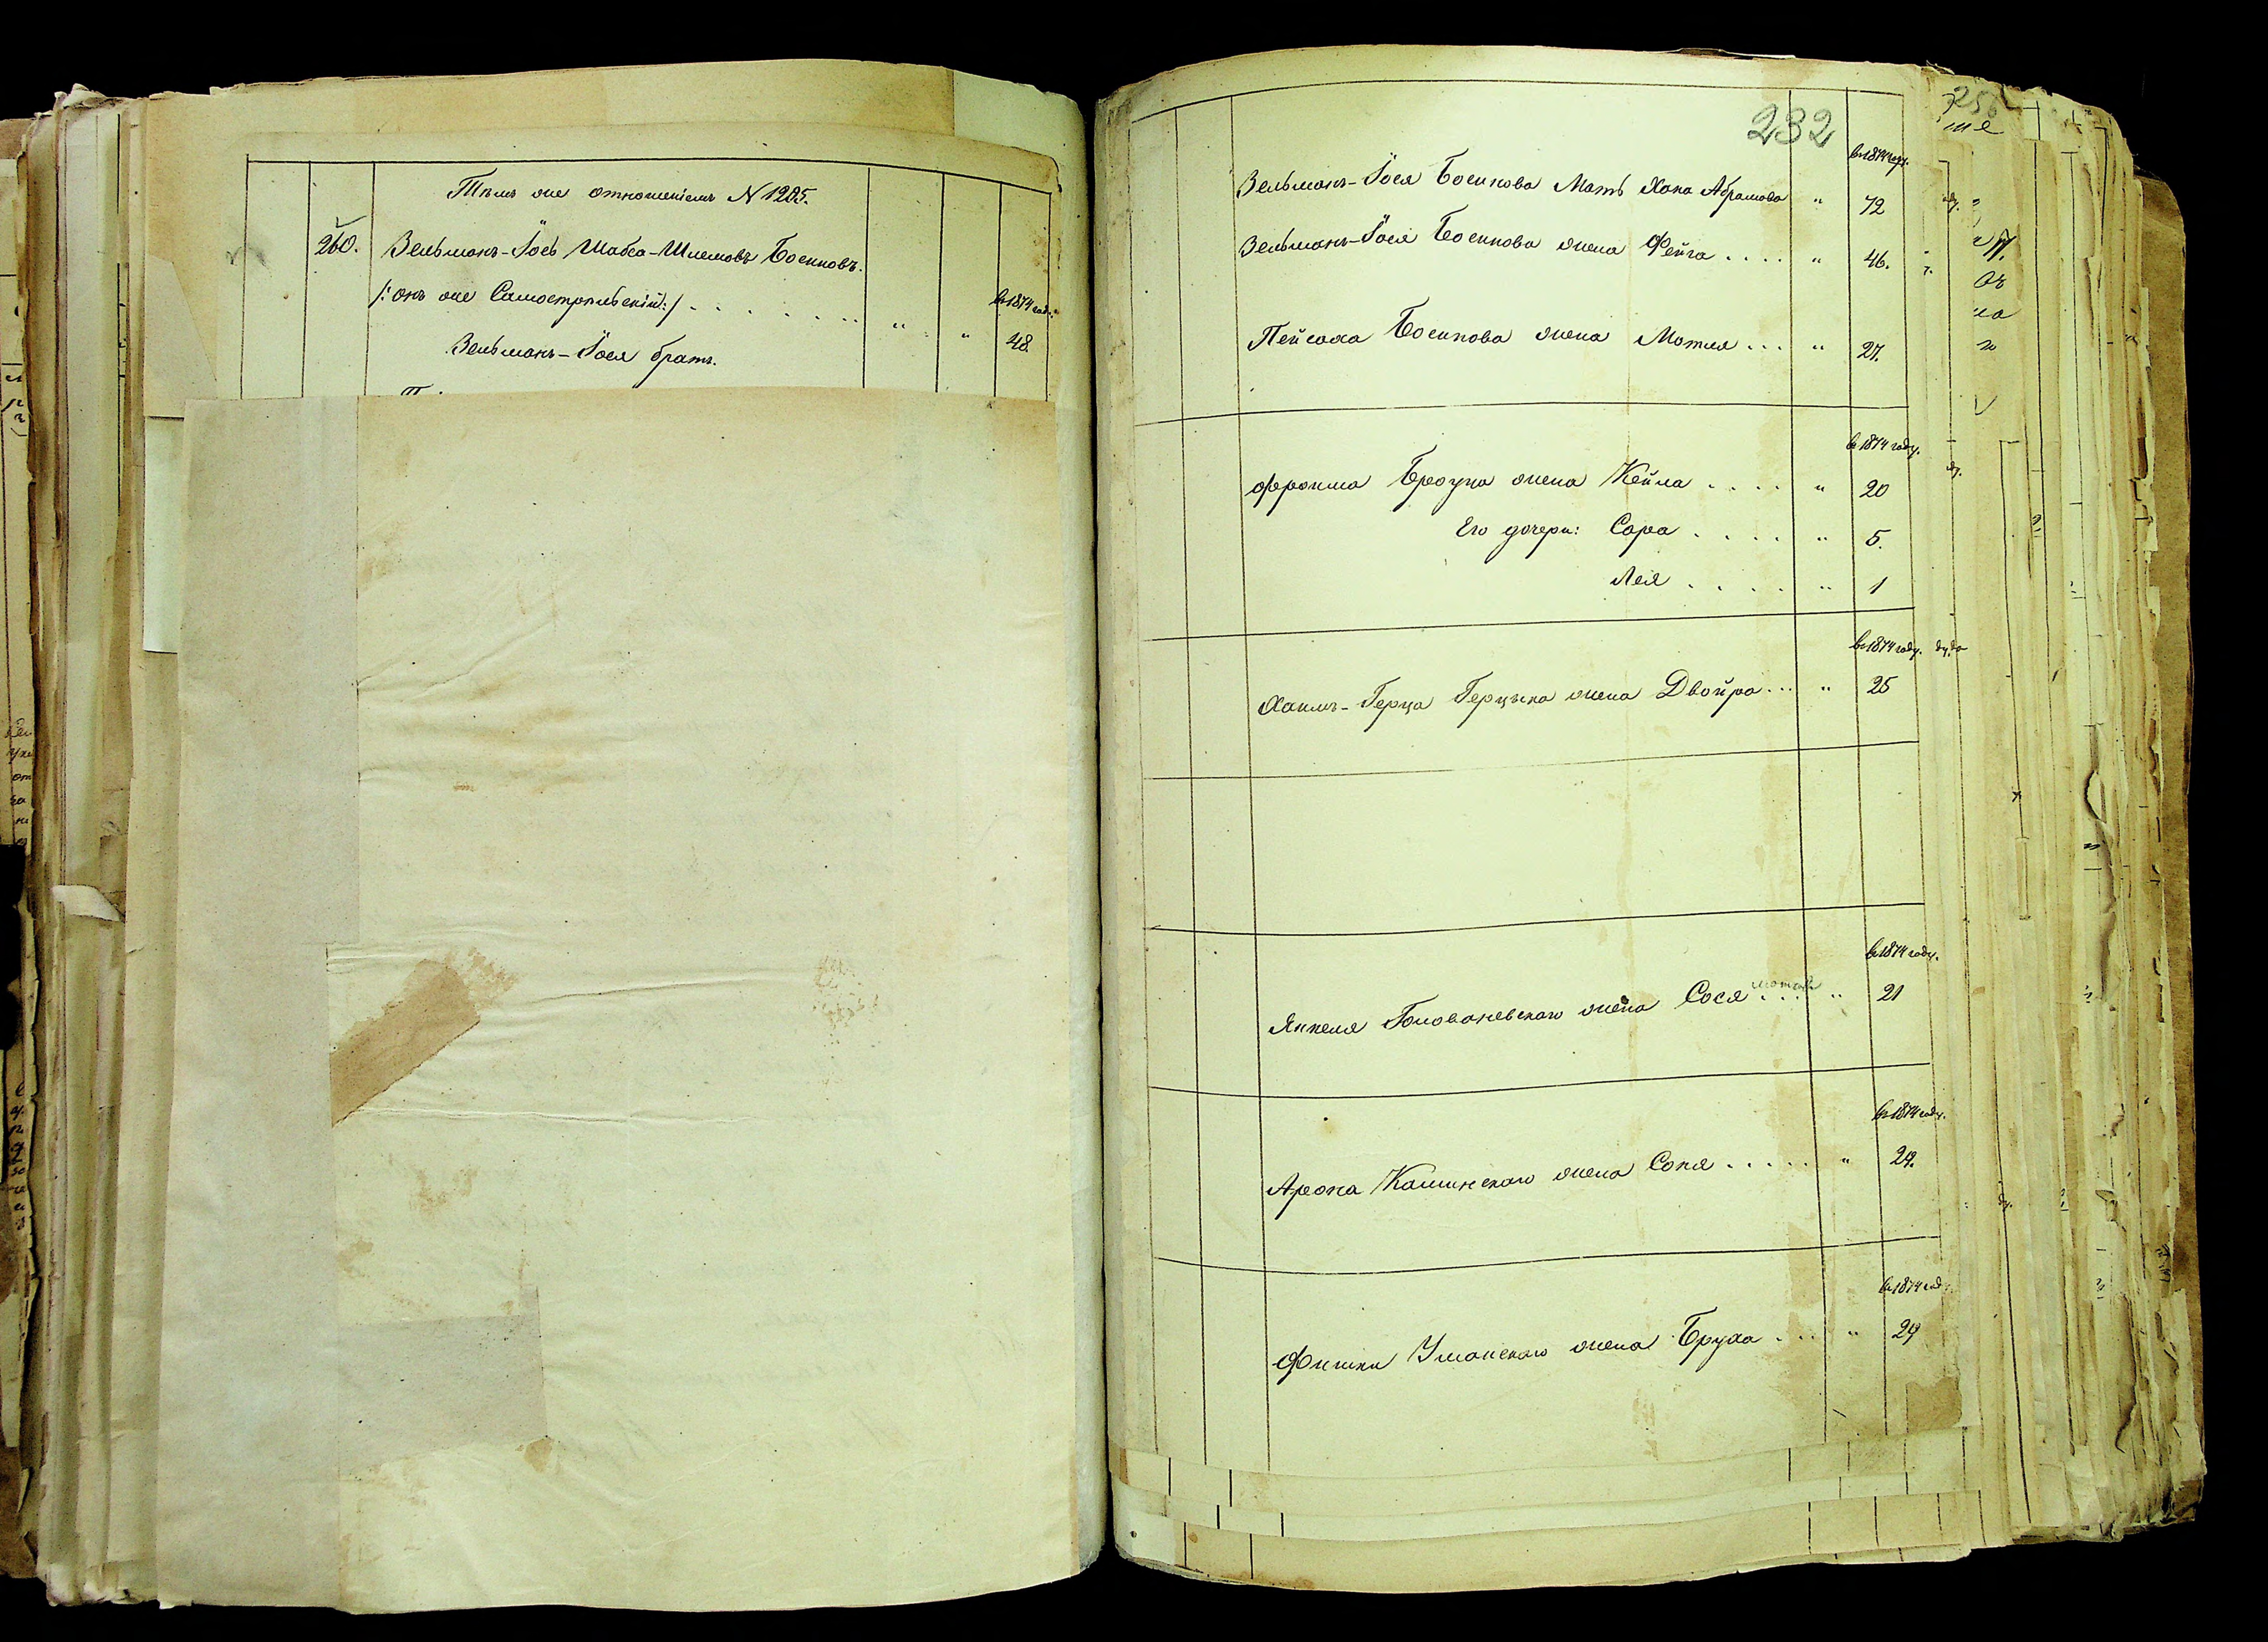 Тѣмъ же отношеніемъ N 1205.
260. Зельманъ-Іось Шабса-Шлемовъ Боснновъ.
/: онъ же Самостремскій :/ . . . . . . . " "
въ 1874 год.
48.
Зельманъ-Іося братъ.
232
въ 1874 году.
Зельманъ-Іося Боснкова Мать Хана Абрамова " 72
Зельманъ-Іося Боснкова жена Фейга . . . . " 46.
Пейсаха Боснкова жена Мотля . . . " 27.
въ 1874 году.
Фроима Броуна жена Кейла . . . . " 20
Его дочери: Сара . . . . " 5.
Лея . . . . " 1
въ 1874 году.
Хаимъ-Герца Герцыка жена Двойра . . . " 25
въ 1874 году.
Янкеля Голованевскаго жена Сося . . . " 21
въ 1874 году.
Арона Каминскаго жена Соня . . . . . " 29.
въ 1874 год
Фишки Уманскаго жена Бруха . . . . " 29
256